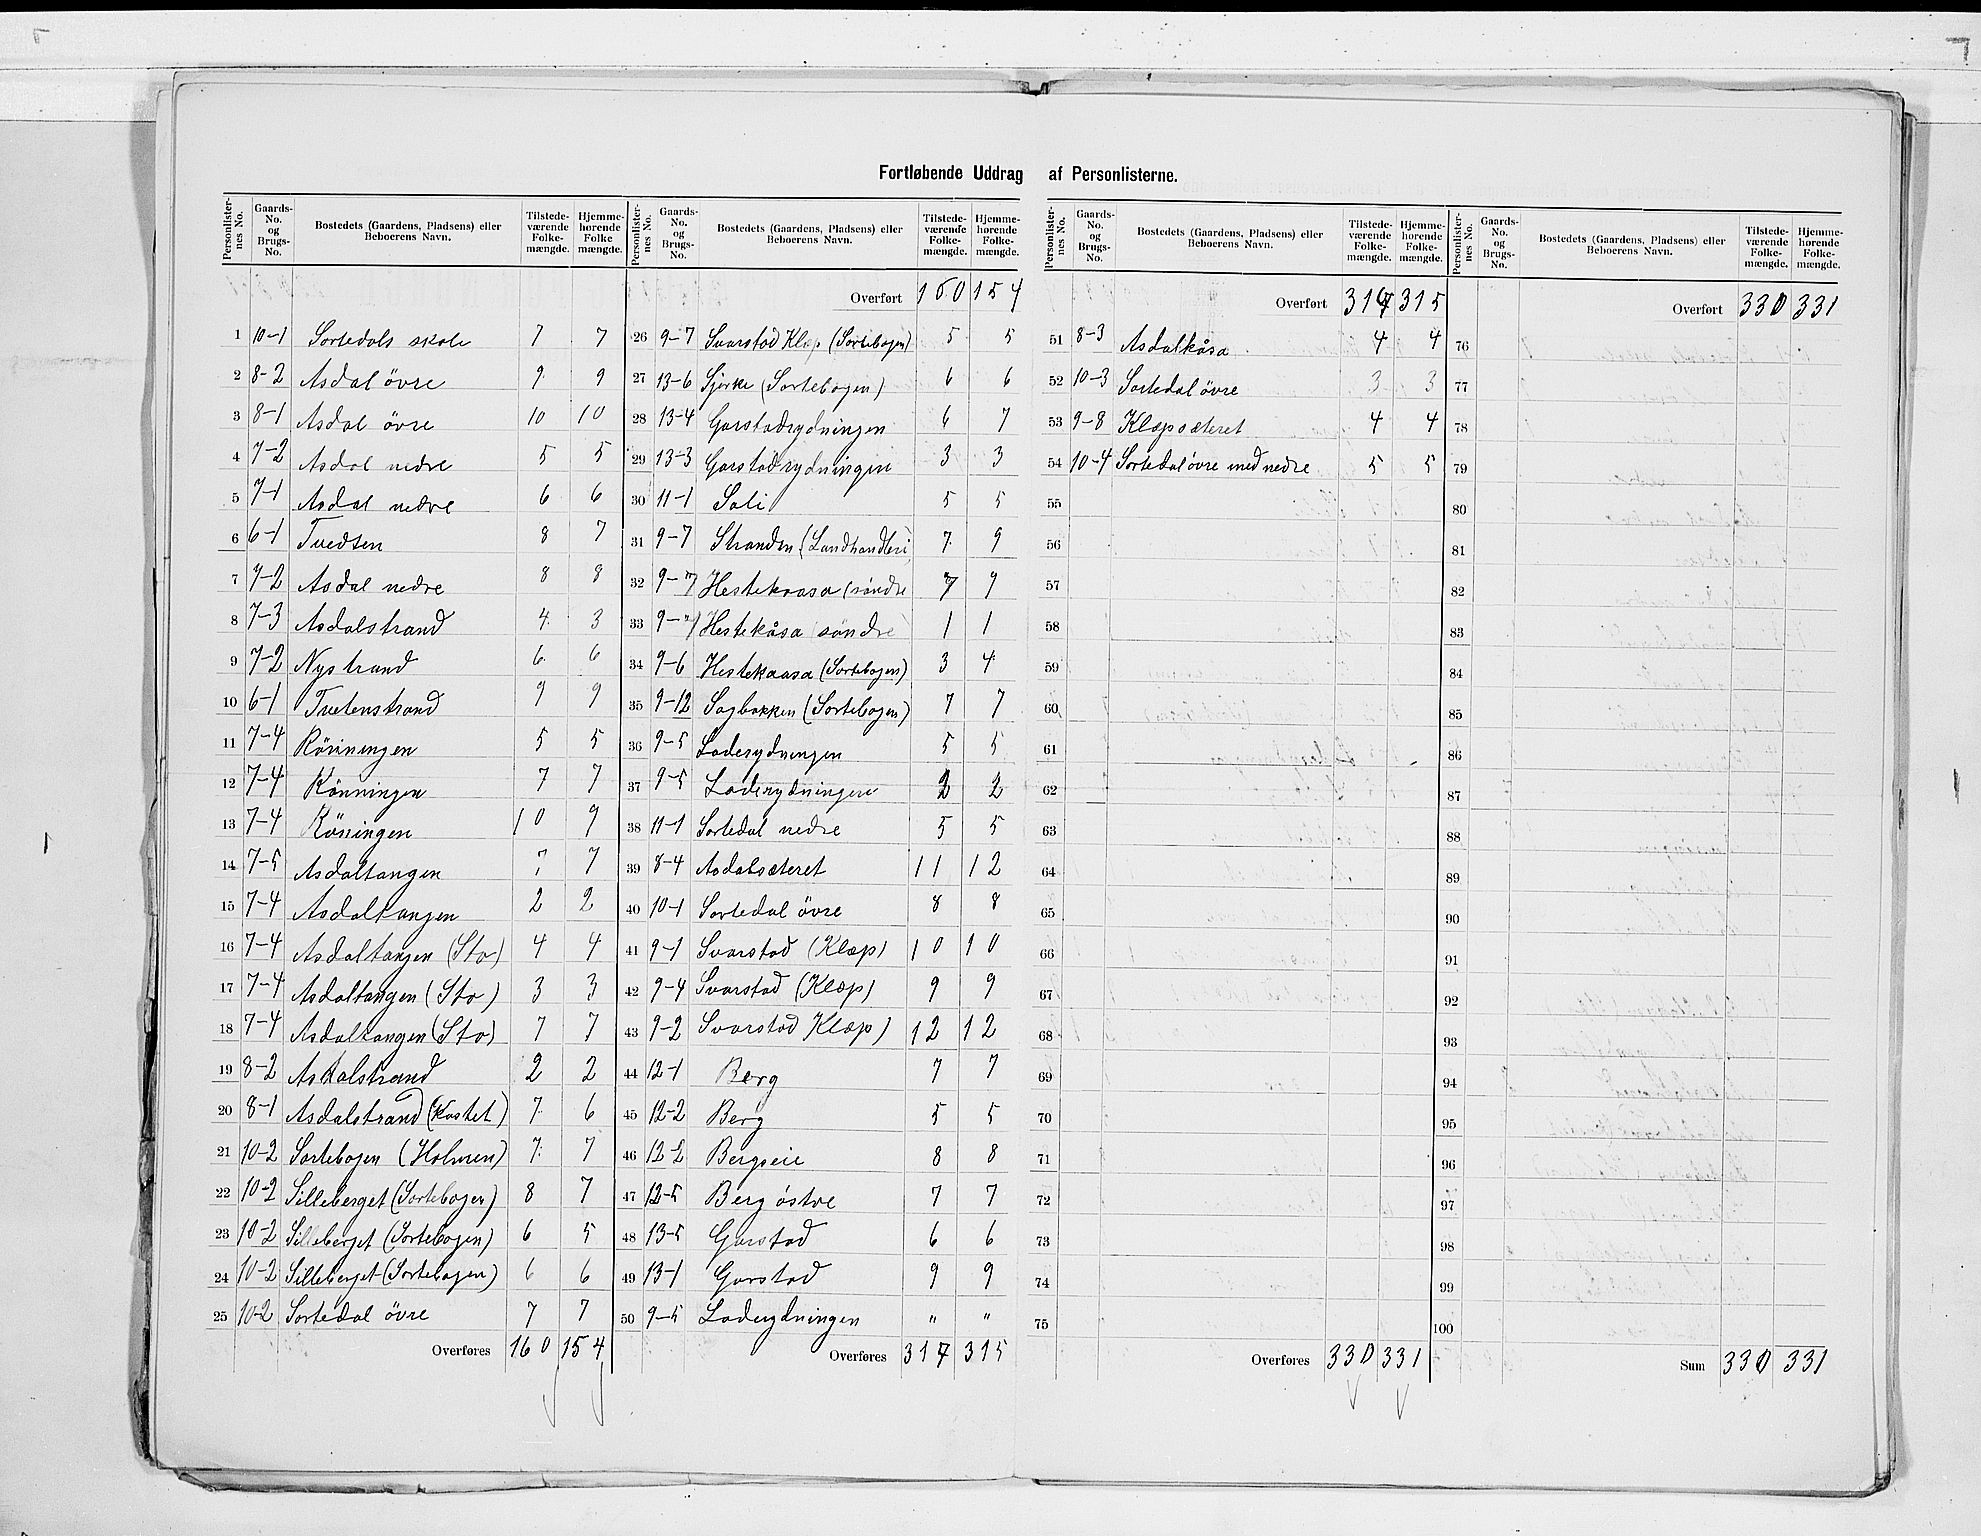 Fortløbende Uddrag af Personlisterne.
Personlister-nes No. Gaards-No. og Brugs-No. Bostedets (Gaardens, Pladsens) eller Beboerens Navn. Tilstede-værende Folke-mængde. Hjemme-hørende Folke mængde.
1 10-1 Sortedals skole 7 7
2 8-2 Asdal övre 9 9
3 8-1 Asdal övre 10 10
4 7-2 Asdal nedre 5 5
5 7-1 Asdal nedre 6 6
6 6-1 Tvedten 8 7
7 7-2 Asdal nedre 8 8
8 7-3 Asdalstrand 4 3
9 7-2 Nystrand 6 6
10 6-1 Tvetenstrand 9 9
11 7-4 Rönningen 5 5
12 7-4 Rönningen 7 7
13 7-4 Röningen 10 9
14 7-5 Asdaltangen 7 7
15 7-4 Asdaltangen 2 2
16 7-4 Asdaltangen (Sto) 4 4
17 7-4 Asdaltangen (Sto) 3 3
18 7-4 Asdaltangen (Sto) 7 7
19 8-2 Asdalstrand 2 2
20 8-1 Asdalstrand (Kastet) 7 6
21 10-2 Sortebogen (Holmen) 7 7
22 10-2 Silleberget (Sortebogen) 8 7
23 10-2 Silleberget (Sortebogen) 6 5
24 10-2 Silleberget (Sortebogen) 6 6
25 10-2 Sortedal övre 7 7
Overføres 160 154
Personlister-nes No. Gaards-No. og Brugs-No. Bostedets (Gaardens, Pladsens) eller Beboerens Navn. Tilstede-værende Folke-mængde. Hjemme-hørende Folke-mængde.
Overført 160 154
26 9-7 Svarstad Klæp (Sortebogen) 5 5
27 13-6 Sjerke (Sortebogen) 6 6
28 13-4 Garstadrydningen 6 7
29 13-3 Garstadrydningen 3 3
30 11-1 Soli 5 5
31 9-7 Stranden (Landhandleri 7 9
32 9-7 Hestekaasa (söndre 7 9
33 9-7 Hestekåsa söndre 1 1
34 9-6 Hestekaasa (Sortebogen) 3 4
35 9-12 Sagbakken (Sortebogen) 7 7
36 9-5 Laderydningen 5 5
37 9-5 Laderydningen 2 2
38 11-1 Sortedal nedre 5 5
39 8-4 Asdalsæteret 11 12
40 10-1 Sortedal övre 8 8
41 9-1 Svarstad (Klæp) 10 10
42 9-4 Svarstad (Klæp) 9 9
43 9-2 Svarstad Klæp) 12 12
44 12-1 Berg 7 7
45 12-2 Berg 5 5
46 12-2 Bergseie 8 8
47 12-5 Berg östre 7 7
48 13-5 Garstad 6 6
49 13-1 Garstad 9 9
50 9-5 Laderydningen " "
Overføres 317 315
Personlister-nes No. Gaards-No. og Brugs-No. Bostedets (Gaardens, Pladsens) eller Beboerens Navn. Tilstede-værende Folke-mængde. Hjemme-hørende Folke-mængde.
Overført 314 315
51 8-3 Asdalkåsa 4 4
52 10-3 Sortedal övre 3 3
53 9-8 Klæpsæteret 4 4
54 10-4 Sortedal övre med nedre 5 5
55
56
57
58
59
60
61
62
63
64
65
66
67
68
69
70
71
72
73
74
75
Overføres 330 331
Personlister-nes No. Gaards-No. og Brugs-No. Bostedets (Gaardens, Pladsens) eller Beboerens Navn. Tilstede-værende Folke-mængde. Hjemme-hørende Folke-mængde.
Overført 330 331
76
77
78
79
80
81
82
83
84
85
86
87
88
89
90
91
92
93
94
95
96
97
98
99
100
Sum 330 331